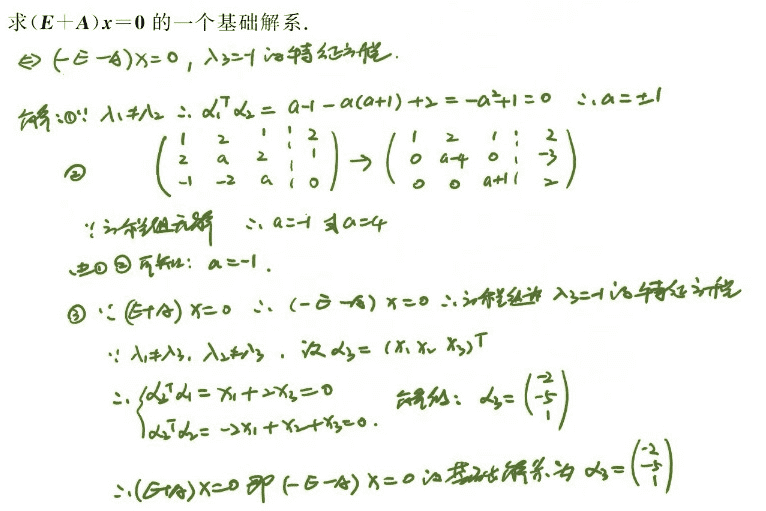 求(E+A)x=0 的一个基础解系.
⇔ (-E-A)x=0, λ₃=-1 的特征方程.
解:①∵ λ₁≠λ₂ ∴ α₁ᵀα₂ = a-1-a(a+1)+2 = -a²+1=0 ∴ a=±1
② ( 1 2 1 ⋮ 2 ; 2 a 2 ⋮ 1 ; -1 -2 a ⋮ 0 ) → ( 1 2 1 ⋮ 2 ; 0 a-4 0 ⋮ -3 ; 0 0 a+1 ⋮ 2 )
∵ 方程组无解 ∴ a=-1 或 a=4
由①②可知: a=-1.
③ ∵ (E+A)x=0 ∴ (-E-A)x=0 ∴ 方程组为 λ₃=-1 的特征方程
∵ λ₁≠λ₃, λ₂≠λ₃ . 设 α₃ = (x₁ x₂ x₃)ᵀ
∴ { α₃ᵀα₁ = x₁+2x₃=0 解得: α₃ = ( -2 ; -5 ; 1 )
α₃ᵀα₂ = -2x₁+x₂+x₃=0.
∴ (E+A)x=0 即 (-E-A)x=0 的基础解系为 α₃ = ( -2 ; -5 ; 1 )